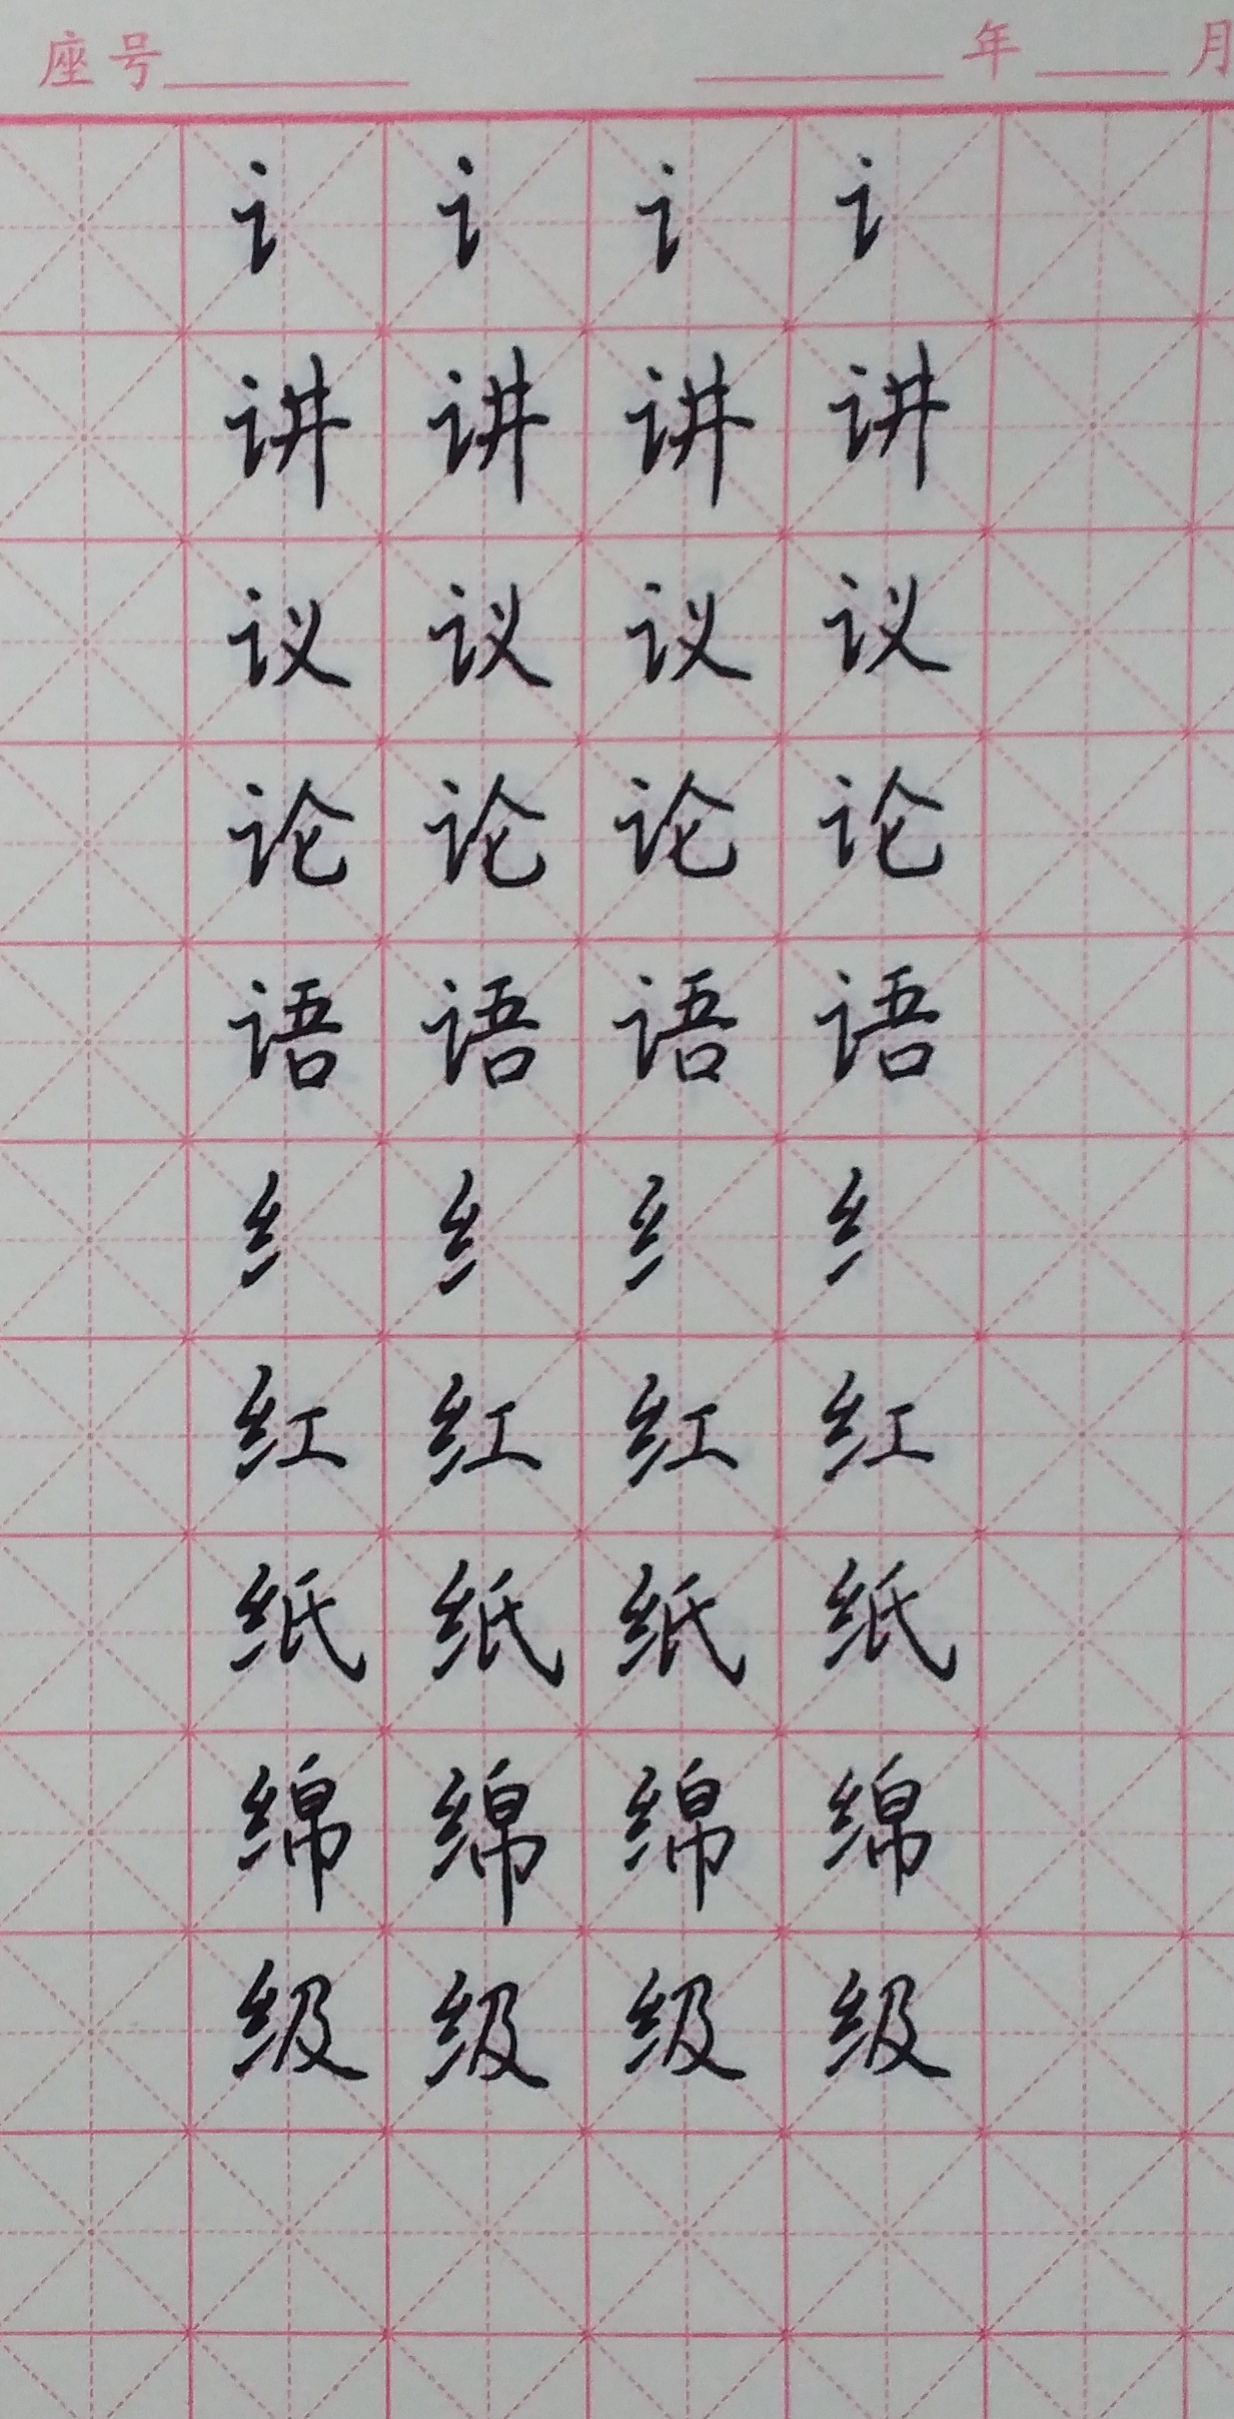 座号 年 月
讠 讠 讠 讠
讲 讲 讲 讲
议 议 议 议
论 论 论 论
语 语 语 语
纟 纟 纟 纟
红 红 红 红
纸 纸 纸 纸
绵 绵 绵 绵
级 级 级 级